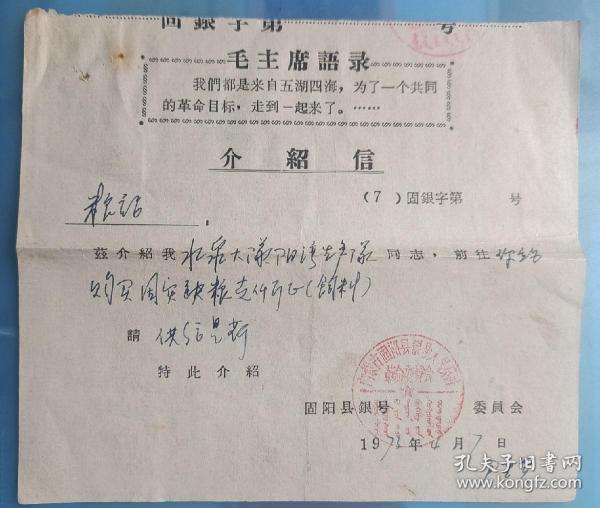 固銀字第 号
毛主席語录
我們都是来自五湖四海，为了一个共同
的革命目标，走到一起来了。……
介紹信
（7）固銀字第 号
粮站：
茲介紹我 水泉大队阳湾生产队 同志，前往 你站
购买固定缺粮支付所正（飼料）
請 供给是荷
特此介紹
固阳县銀号 委員会
197 年4月7日
孔夫子旧书网
www.kongfz.com